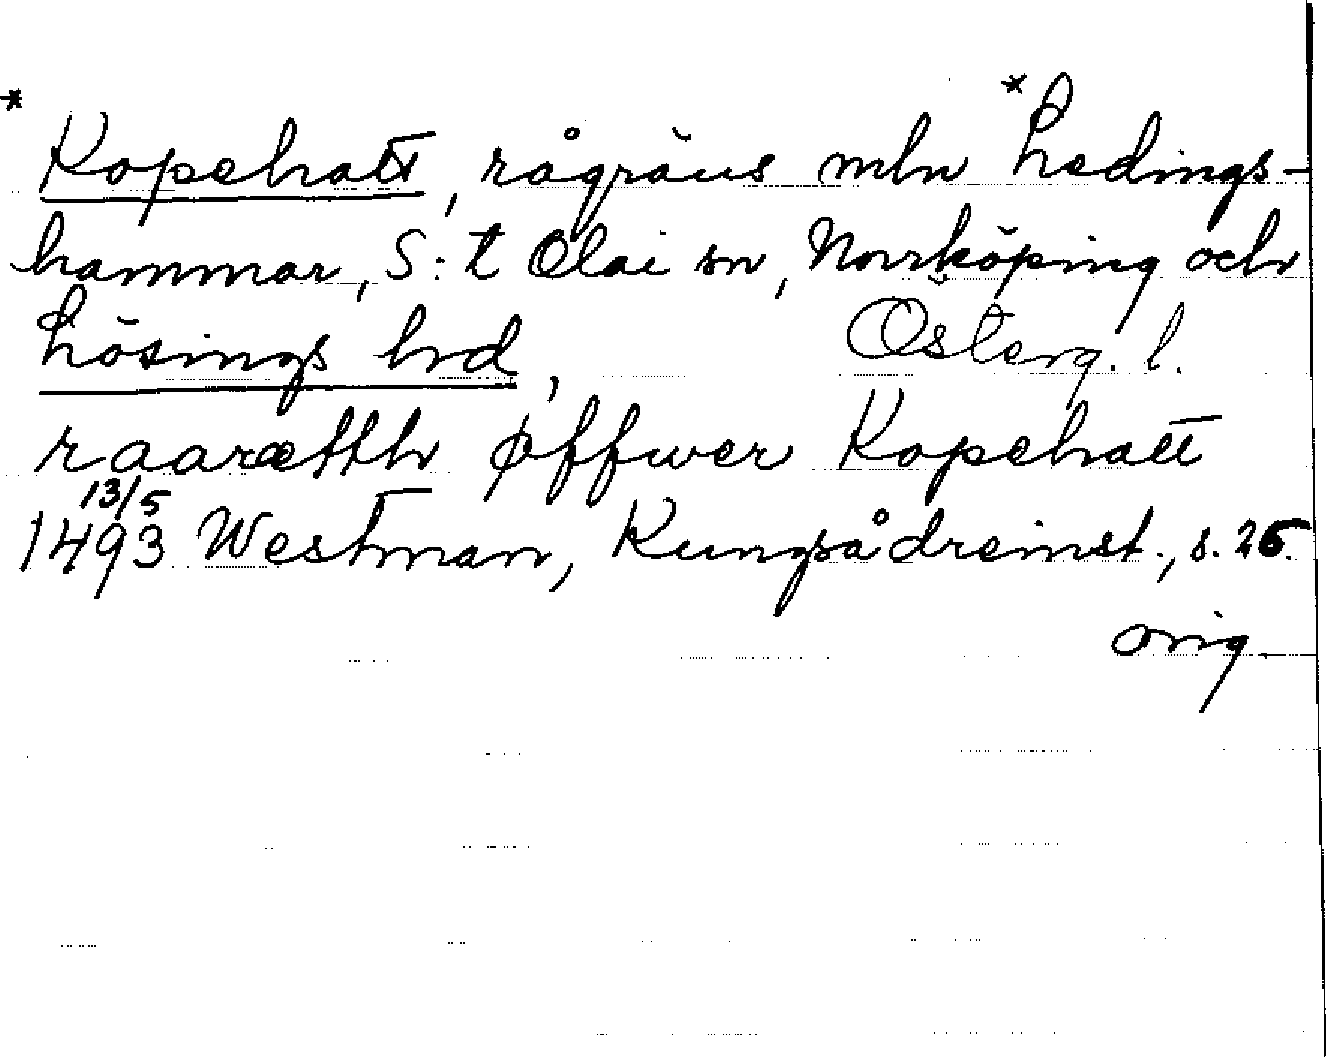 * Kopehatt, rågräns mln *Ledings-
hammar, S:t Olai sn, Norrköping och
Lösings hrd, Österg. l.
raarætth øffwer Kopehatt
13/5
1493 Westman, Kungsådreinst., s. 25.
orig.